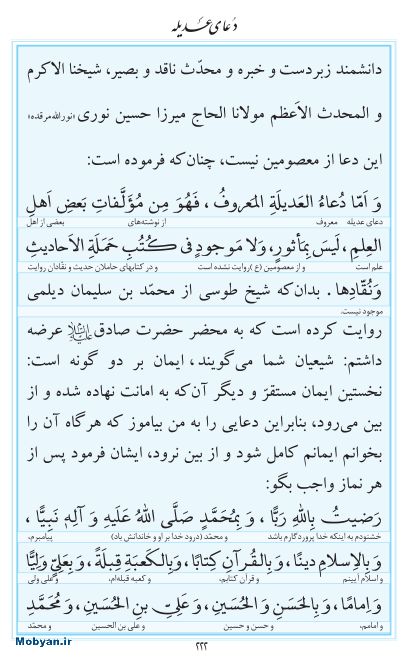 دعای عدیله
دانشمند زبردست و خبره و محدّث ناقد و بصیر، شیخنا الاکرم
و المحدث الاَعظم مولانا الحاج میرزا حسین نوری (نورالله‌مرقده)
این دعا از معصومین نیست، چنان‌که فرموده است:
وَ اَمّا دُعاءُ العَدیلَةِ المَعروفُ ، فَهُوَ مِن مُؤَلَّفاتِ بَعضِ اَهلِ
دعای عدیله معروف از نوشته‌های بعضی از اهل
العِلمِ، لَیسَ بِمَأثورٍ، وَلا مَوجودٍ فی کُتُبِ حَمَلَةِ الاَحادیثِ
علم است و از معصومین (ع )روایت نشده است و در کتابهای حاملان حدیث و نقادان روایت
وَنُقّادِها . بدان‌که شیخ طوسی از محمّد بن سلیمان دیلمی
موجود نیست.
روایت کرده است که به محضر حضرت صادق علیه‌السلام عرضه
داشتم: شیعیان شما می‌گویند، ایمان بر دو گونه است:
نخستین ایمان مستقرّ و دیگر آن‌که به امانت نهاده شده و از
بین می‌رود، بنابراین دعایی را به من بیاموز که هرگاه آن را
بخوانم ایمانم کامل شود و از بین نرود، ایشان فرمود پس از
هر نماز واجب بگو:
رَضیتُ بِاللهِ رَبًّا ، وَ بِمُحَمَّدٍ صَلَّی اللهُ عَلَیهِ وَ آلِهٖ نَبِیًّا ،
خشنودم به اینکه خدا پروردگارم باشد و محمّد (درود خدا بر او و خاندانش باد) پیامبرم،
وَ بِالاِسلامِ دینًا ، وَ بِالقُرآنِ کِتابًا ، وَ بِالکَعبَةِ قِبلَةً ، وَ بِعَلِیٍّ وَلِیًّا
و اسلام آیینم و قرآن کتابم، و کعبه قبله‌ام، و علی ولی
وَ اِمامًا ، وَ بِالحَسَنِ وَ الحُسَینِ ، وَ عَلِیِّ بنِ الحُسَینِ ، وَ مُحَمَّدِ
و امامم، و حسن و حسین و علی بن الحسین و محمّد
۲۲۲
Mobyan.ir